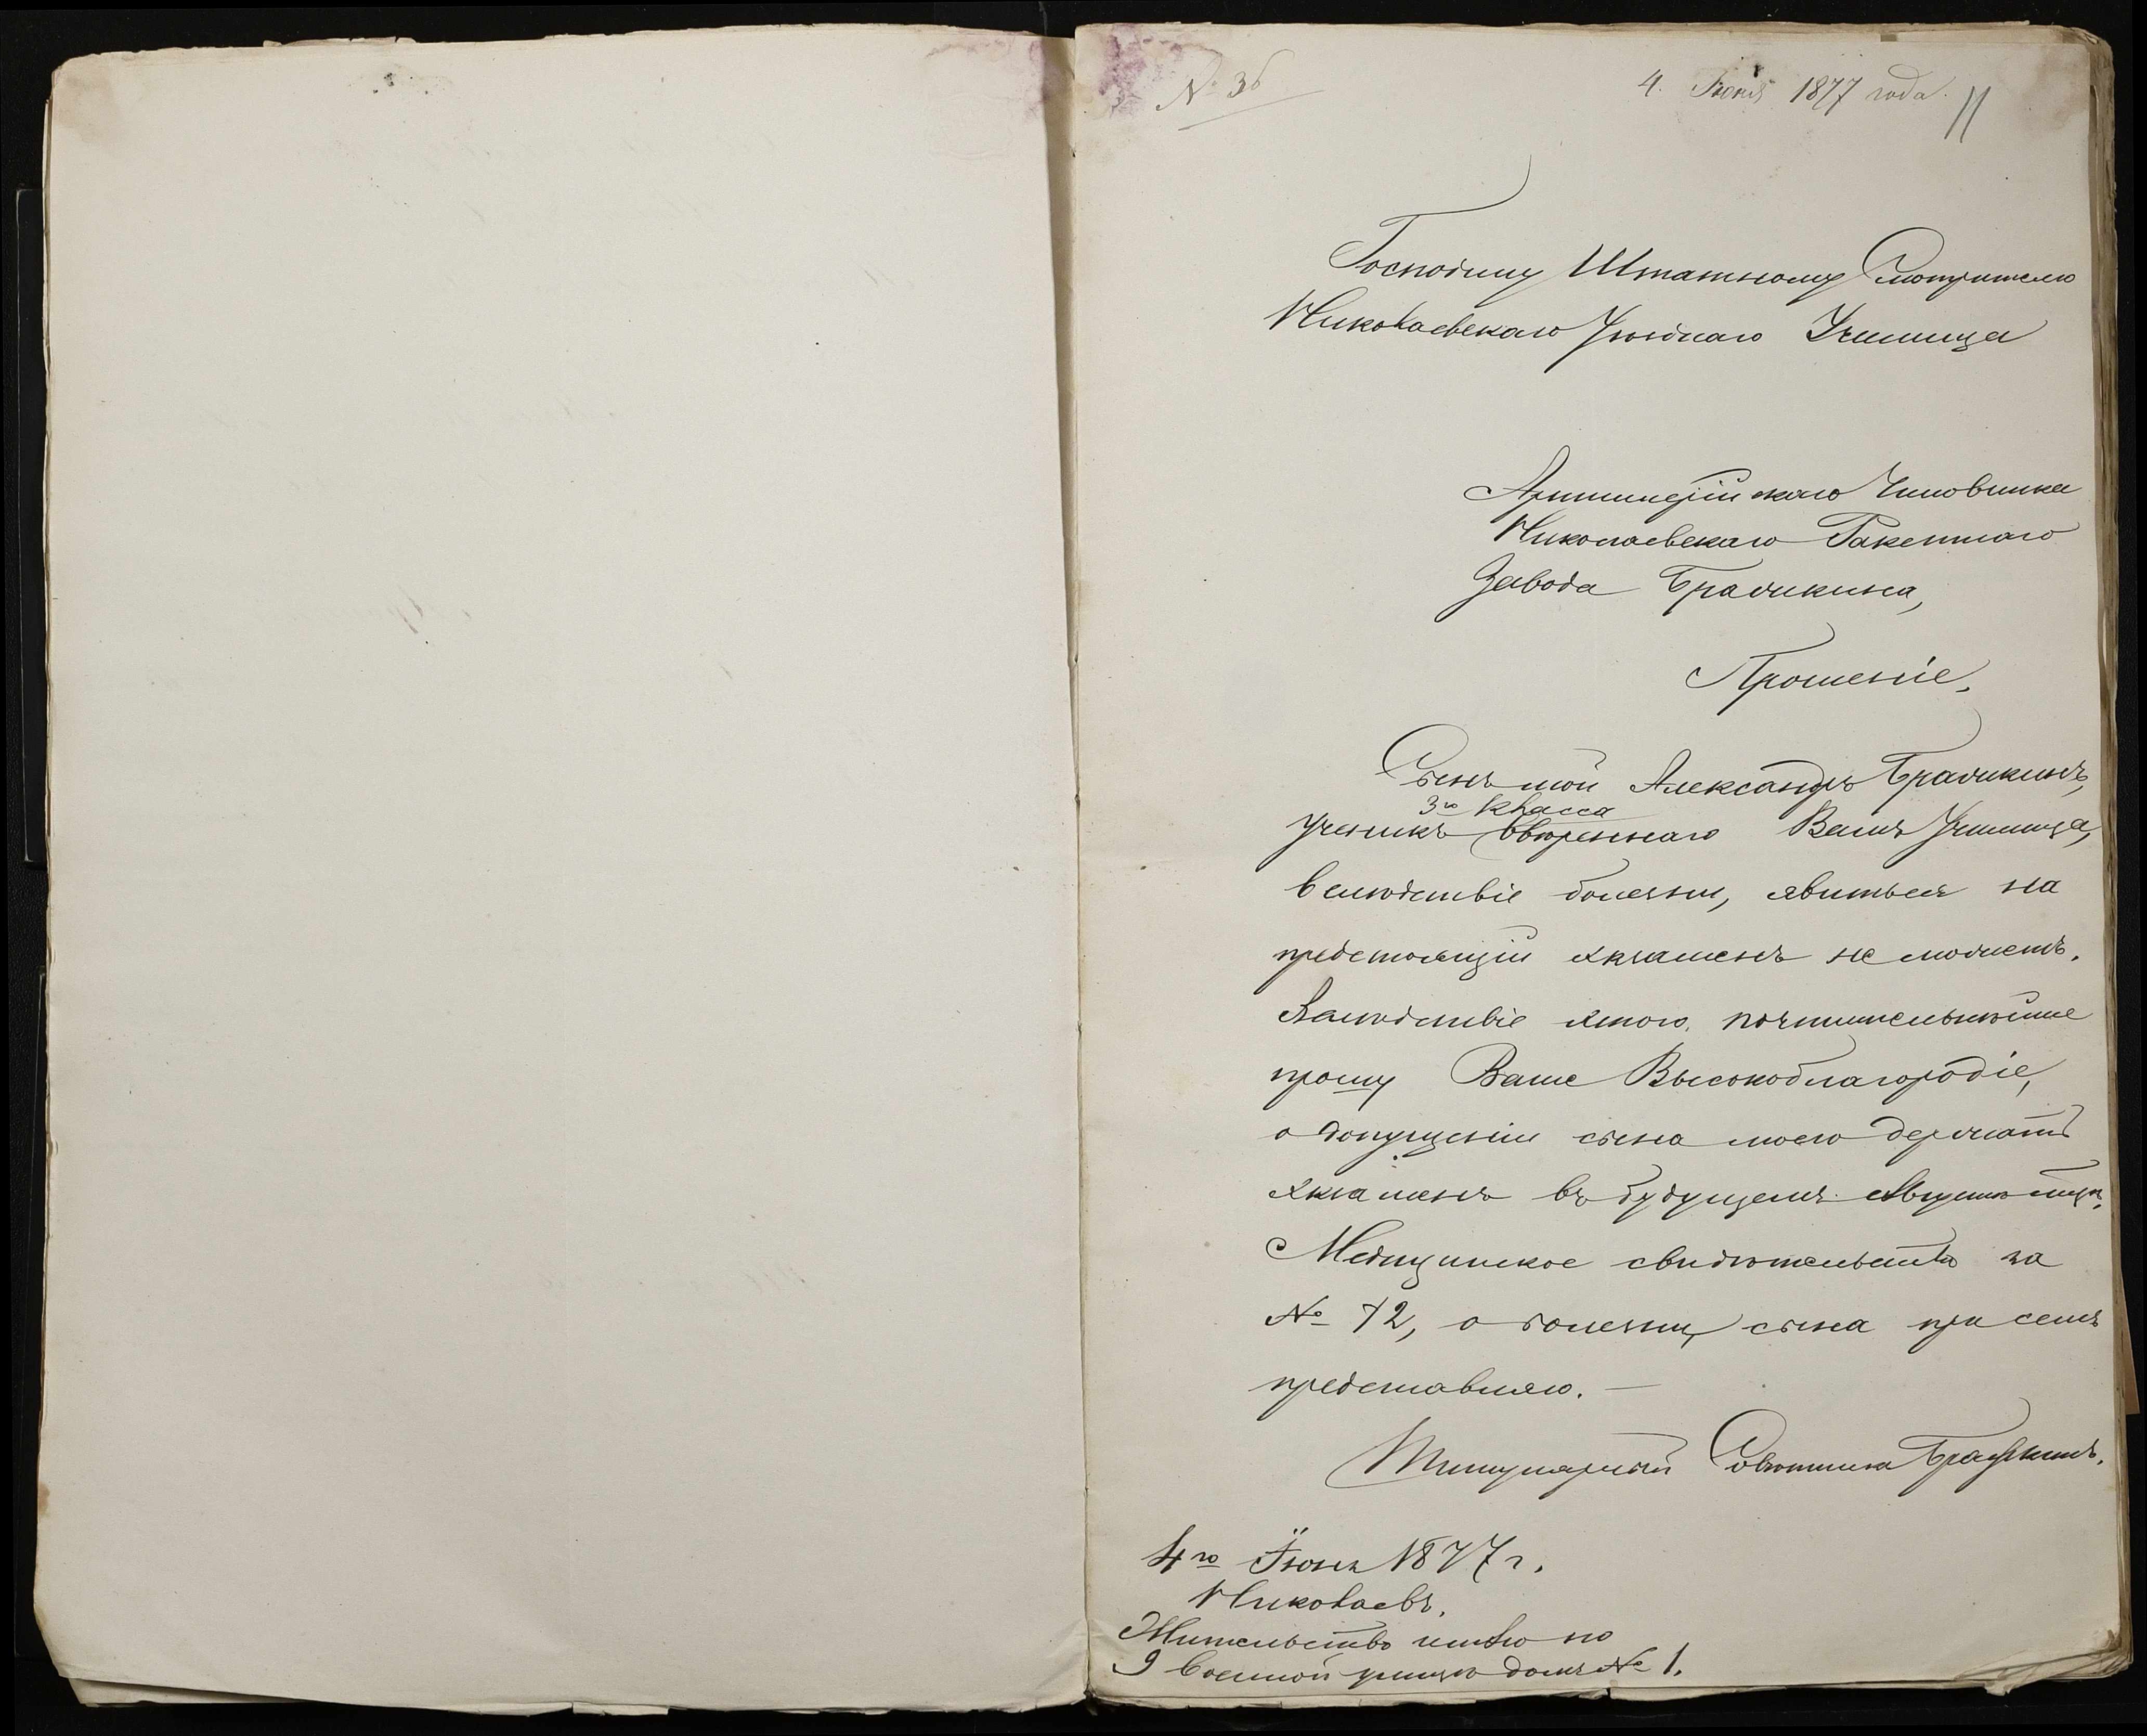 № 36
4. Іюня 1877 года.
11
Господину Штатному Смотрителю
Николаевскаго Уѣзднаго Училища
Артиллерійскаго Чиновника
Николаевскаго Ракетнаго
Завода Бражикина,
Прошеніе.
Сынъ мой Александръ Бражикинъ,
3го класса
ученикъ ввѣреннаго Вамъ Училища,
вслѣдствіе болезни, явиться на
предстоящій экзаменъ не можетъ.
Вслѣдствіе этого, почтительнѣйше
прошу Ваше Высокоблагородіе,
о допущеніи сына моего держать
экзаменъ въ будущемъ Августѣ мцѣ.
Медицинское свидѣтельство за
№ 72, о болезни, сына при семъ
представляю. —
Титулярный Совѣтникъ Бражикинъ.
4го Іюня 1877 г.
Николаевъ.
Жительство имѣю по
9 Военной улицѣ домъ № 1.